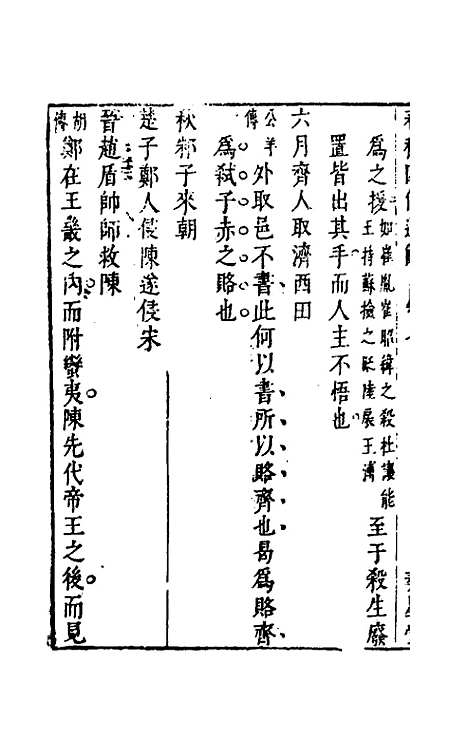 為之援如崔胤崔昭緯之殺杜讓能
王持蘇撿之貶陸扆王溥至于殺生廢
置皆出其手而人主不悟也
六月齊人取濟西田
公羊傳外取邑不書此何以書所以賂齊也曷為賂齊
為弒子赤之賂也
秋邾子來朝
楚子鄭人侵陳遂侵宋
晉趙盾帥師救陳
胡傳鄭在王畿之內而附蠻夷陳先代帝王之後而見